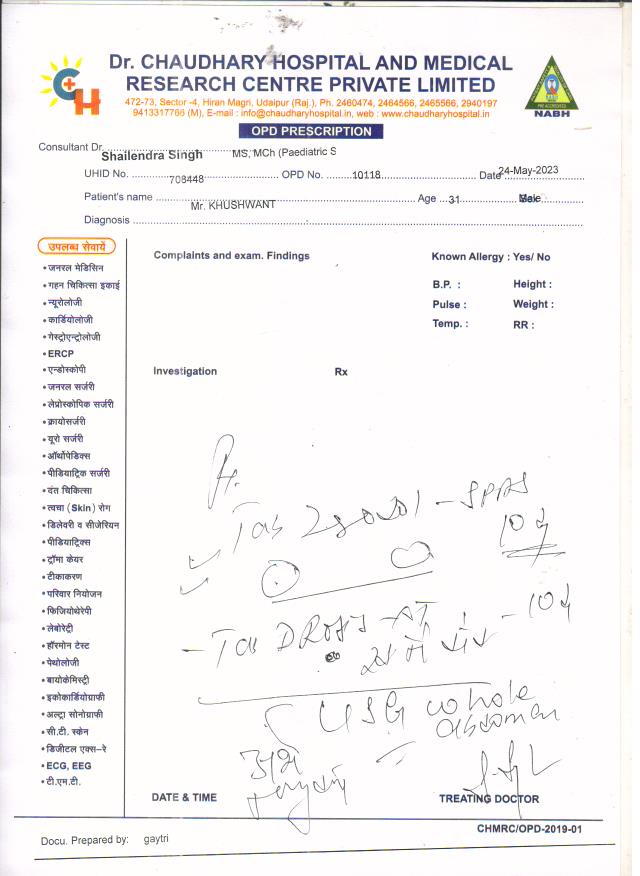 Dr. CHAUDHARY HOSPITAL AND MEDICAL
RESEARCH CENTRE PRIVATE LIMITED
472-73, Sector -4, Hiran Magri, Udaipur (Raj.), Ph. 2460474, 2464566, 2465566, 2940197
9413317766 (M), E-mail : info@chaudharyhospital.in, web : www.chaudharyhospital.in
NABH
OPD PRESCRIPTION
Consultant Dr. Shailendra Singh MS, MCh (Paediatric S
UHID No. 708448 OPD No. 10118 Date 24-May-2023
Patient's name Mr. KHUSHWANT Age 31 Male
Diagnosis
उपलब्ध सेवायें
Complaints and exam. Findings
Known Allergy : Yes/ No
B.P. : Height :
Pulse : Weight :
Temp. : RR :
Investigation Rx
• जनरल मेडिसिन
• गहन चिकित्सा इकाई
• न्यूरोलोजी
• कार्डियोलोजी
• गेस्ट्रोएन्ट्रोलोजी
• ERCP
• एन्डोस्कोपी
• जनरल सर्जरी
• लेप्रोस्कोपिक सर्जरी
• क्रायोसर्जरी
• यूरो सर्जरी
• ऑर्थोपेडिक्स
• पीडियाट्रिक सर्जरी
• दंत चिकित्सा
• त्वचा (Skin) रोग
• डिलेवरी व सीजेरियन
• पीडियाट्रिक्स
• ट्रॉमा केयर
• टीकाकरण
• परिवार नियोजन
• फिजियोथेरेपी
• लेबोरेट्री
• हॉरमोन टेस्ट
• पेथोलोजी
• बायोकेमिस्ट्री
• इकोकार्डियोग्राफी
• अल्ट्रा सोनोग्राफी
• सी.टी. स्केन
• डिजीटल एक्स-रे
• ECG, EEG
• टी.एम.टी.
Tab
10 d
Tab - 10 d
USG whole
abdomen
DATE & TIME TREATING DOCTOR
CHMRC/OPD-2019-01
Docu. Prepared by: gaytri